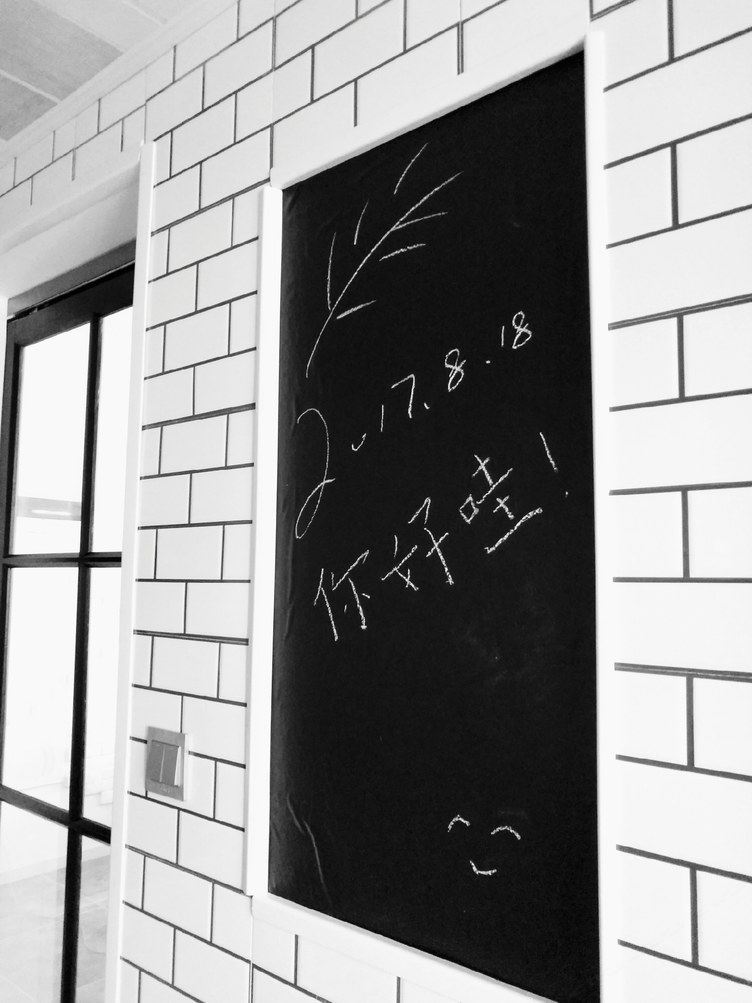 2017.8.18
你好哇!